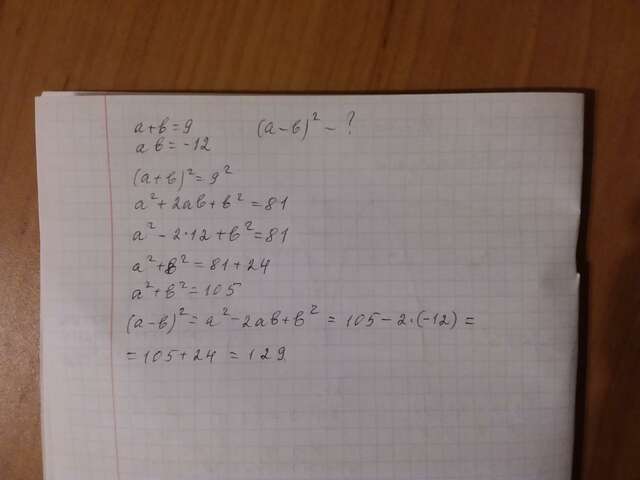 a+b=9 (a-b)² - ?
ab=-12
(a+b)²=9²
a²+2ab+b²=81
a²-2·12+b²=81
a²+b²=81+24
a²+b²=105
(a-b)²=a²-2ab+b²=105-2·(-12)=
=105+24=129